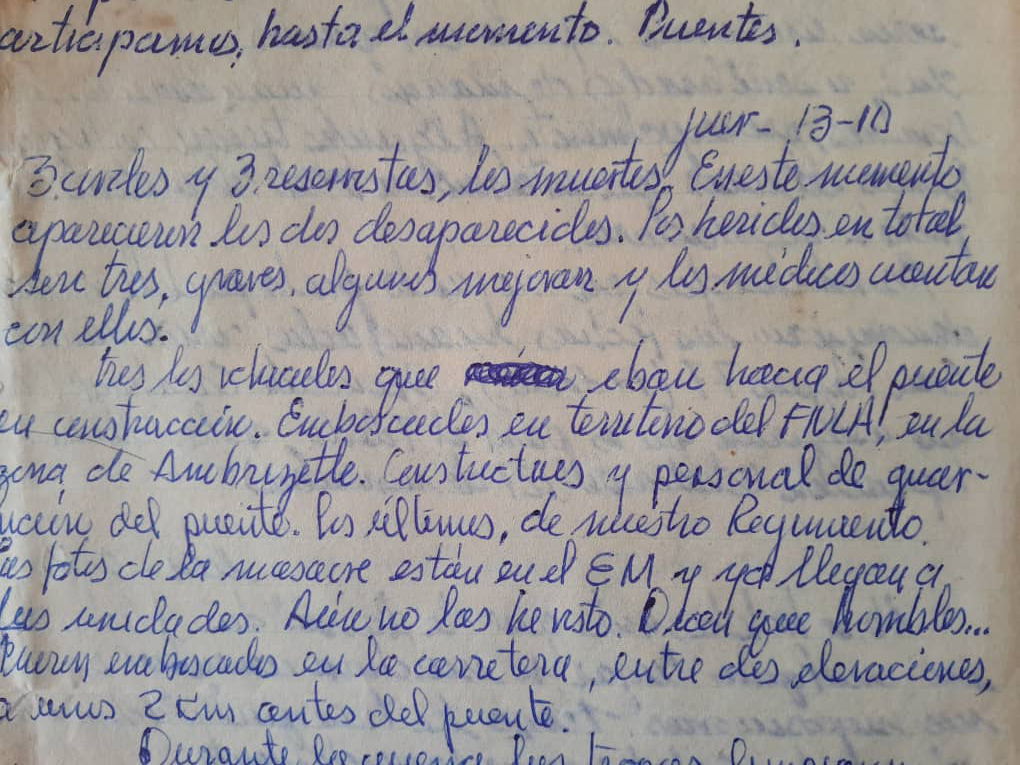 articipamos, hasta el momento. Puentes.
juev- 13-10
3 civiles y 3 reservistas, los muertos. En este momento
aparecieron los dos desaparecidos. Los heridos en total
son tres, graves, algunos mejoran y los médicos cuentan
con ellos.
Tres los vehículos que iban hacia el puente
en construcción. Emboscados en territorio del FNLA, en la
zona de Ambrizette. Constructores y personal de guar-
nición del puente. Los últimos, de nuestro Regimiento.
as fotos de la masacre están en el EM y ya llegan a
las unidades. Aún no las he visto. Dicen que horribles...
Fueron emboscados en la carretera, entre dos elevaciones,
a unos 2 Km antes del puente.
Durante la guerra las tropas